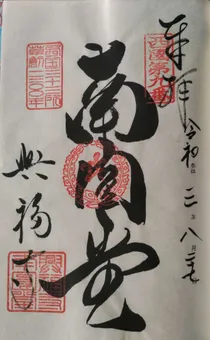 奉拝
令和三年八月三七
西国第九番
南円堂
西国三十三所
草創一三〇〇年
興福寺